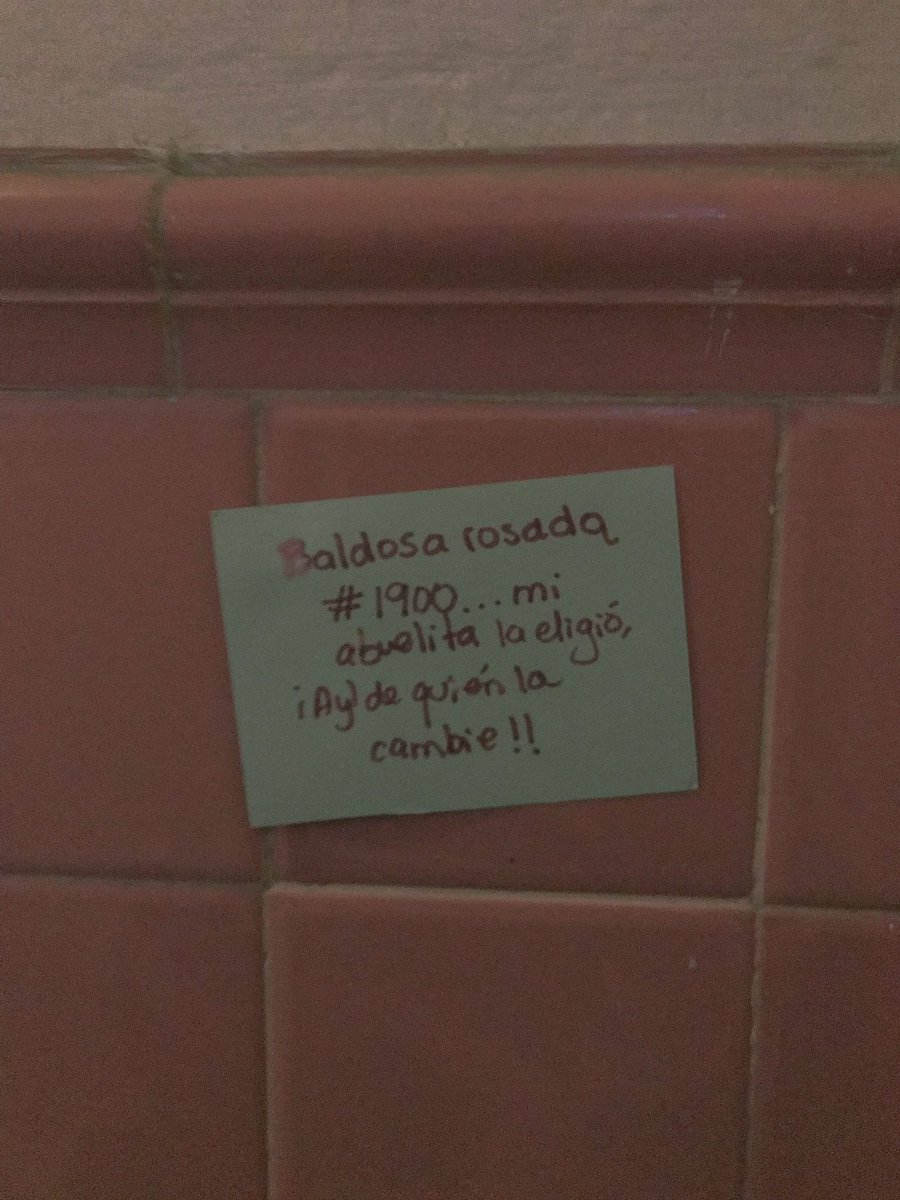 Baldosa rosada
#1900... mi
abuelita la eligió,
¡Ay! de quién la
cambie!!